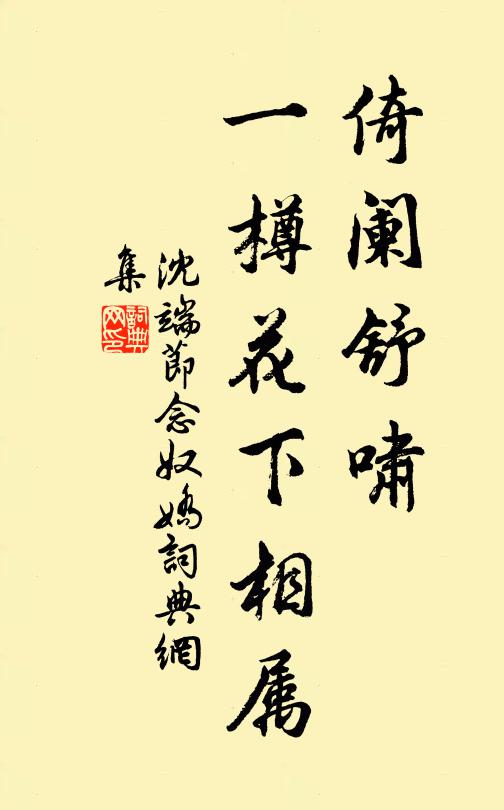 倚阑舒啸
一樽花下相属
沈端節念奴嬌詞典網
集
詞典网印